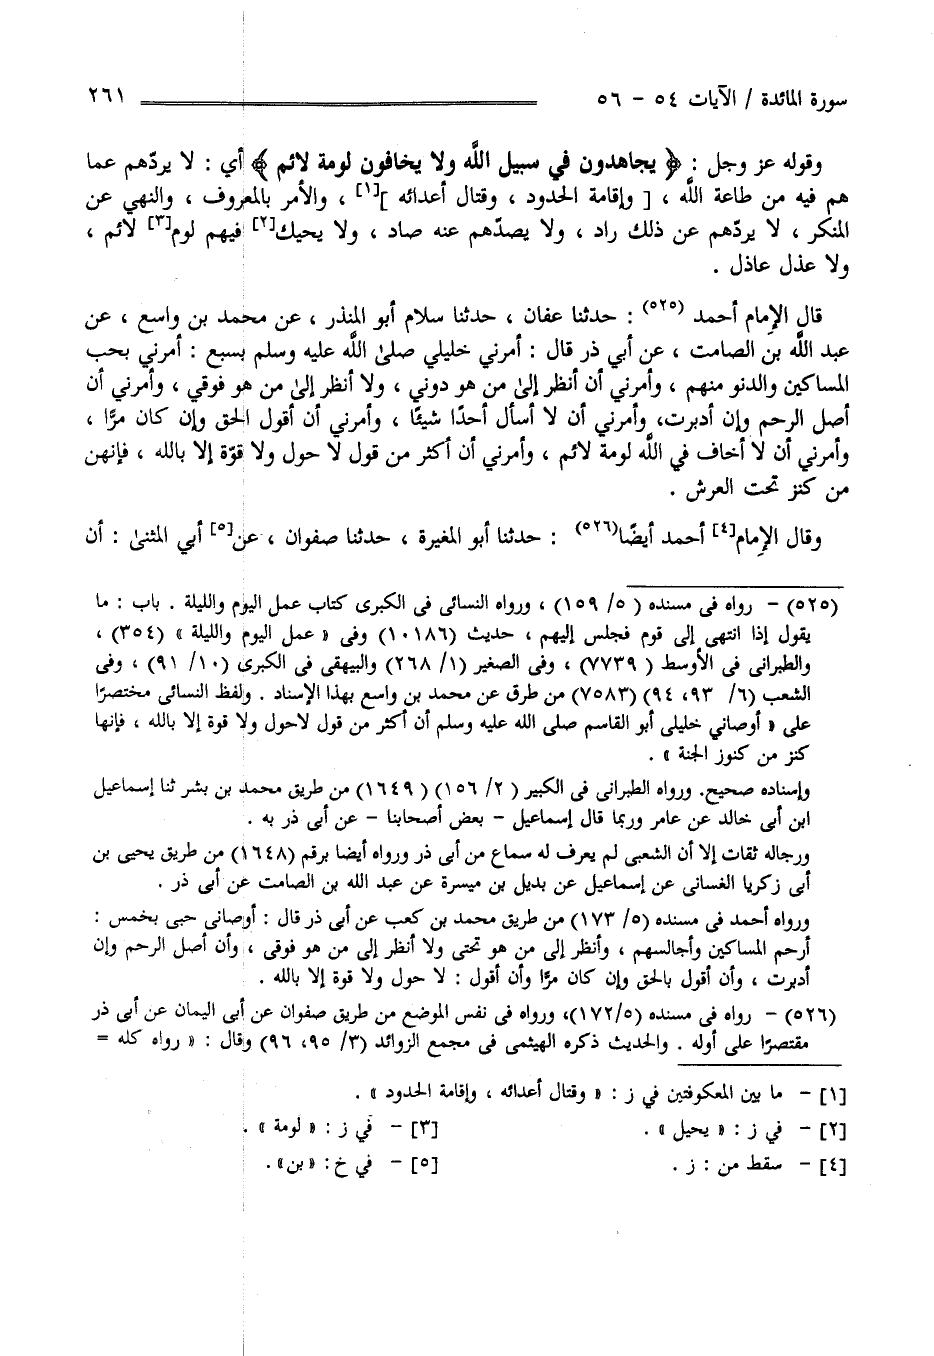 سورة المائدة / الآيات ٥٤ - ٥٦ ٢٦١
وقوله عز وجل : ﴿ يجاهدون في سبيل اللَّه ولا يخافون لومة لائم ﴾ أي : لا يردّهم عما
هم فيه من طاعة اللَّه ، [ وإقامة الحدود ، وقتال أعدائه ][١] ، والأمر بالمعروف ، والنهي عن
المنكر ، لا يردّهم عن ذلك راد ، ولا يصدّهم عنه صاد ، ولا يحيك[٢] فيهم لوم[٣] لائم ،
ولا عذل عاذل .
قال الإمام أحمد (٥٢٥) : حدثنا عفان ، حدثنا سلام أبو المنذر ، عن محمد بن واسع ، عن
عبد اللَّه بن الصامت ، عن أبي ذر قال : أمرني خليلي صلىٰ اللَّه عليه وسلم بسبع : أمرني بحب
المساكين والدنو منهم ، وأمرني أن أنظر إلىٰ من هو دوني ، ولا أنظر إلىٰ من هو فوقي ، وأمرني أن
أصل الرحم وإن أدبرت، وأمرني أن لا أسأل أحدًا شيئًا ، وأمرني أن أقول الحق وإن كان مرًّا ،
وأمرني أن لا أخاف في اللَّه لومة لائم ، وأمرني أن أكثر من قول لا حول ولا قوّة إلا بالله ، فإنهن
من كنز تحت العرش .
وقال الإمام[٤] أحمد أيضًا(٥٢٦) : حدثنا أبو المغيرة ، حدثنا صفوان ، عن[٥] أبي المثنىٰ : أن
(٥٢٥) - رواه فى مسنده ( ٥/ ١٥٩) ، ورواه النسائى فى الكبرى كتاب عمل اليوم والليلة . باب : ما
يقول إذا انتهى إلى قوم فجلس إليهم ، حديث (١٠١٨٦) وفى « عمل اليوم والليلة » (٣٥٤) ،
والطبرانى فى الأوسط ( ٧٧٣٩) ، وفى الصغير (١/ ٢٦٨) والبيهقى فى الكبرى (١٠/ ٩١) ، وفى
الشعب (٦/ ٩٣، ٩٤) (٧٥٨٣) من طرق عن محمد بن واسع بهذا الإسناد . ولفظ النسائى مختصرًا
على « أوصاني خليلى أبو القاسم صلى الله عليه وسلم أن أكثر من قول لاحول ولا قوة إلا بالله ، فإنها
كنز من كنوز الجنة » .
وإسناده صحيح. ورواه الطبرانى فى الكبير ( ٢/ ١٥٦) ( ١٦٤٩) من طريق محمد بن بشر ثنا إسماعيل
ابن أبى خالد عن عامر وربما قال إسماعيل - بعض أصحابنا - عن أبى ذر به .
ورجاله ثقات إلا أن الشعبى لم يعرف له سماع من أبى ذر ورواه أيضا برقم (١٦٤٨) من طريق يحيى بن
أبى زكريا الغسانى عن إسماعيل عن بديل بن ميسرة عن عبد الله بن الصامت عن أبى ذر .
ورواه أحمد فى مسنده (٥/ ١٧٣) من طريق محمد بن كعب عن أبى ذر قال : أوصانى حبى بخمس :
أرحم المساكين وأجالسهم ، وأنظر إلى من هو تحتى ولا أنظر إلى من هو فوقى ، وأن أصل الرحم وإن
أدبرت ، وأن أقول بالحق وإن كان مرًّا وأن أقول : لا حول ولا قوة إلا بالله .
(٥٢٦) - رواه فى مسنده (١٧٢/٥)، ورواه فى نفس الموضع من طريق صفوان عن أبى اليمان عن أبى ذر
مقتصرًا على أوله . والحديث ذكره الهيثمى فى مجمع الزوائد (٣/ ٩٥، ٩٦) وقال : « رواه كله =
[١] - ما بين المعكوفتين في ز : « وقتال أعدائه ، وإقامة الحدود » .
[٢] - في ز : « يحيل » . [٣] - في ز : « لومة » .
[٤] - سقط من : ز . [٥] - في خ : « بن » .